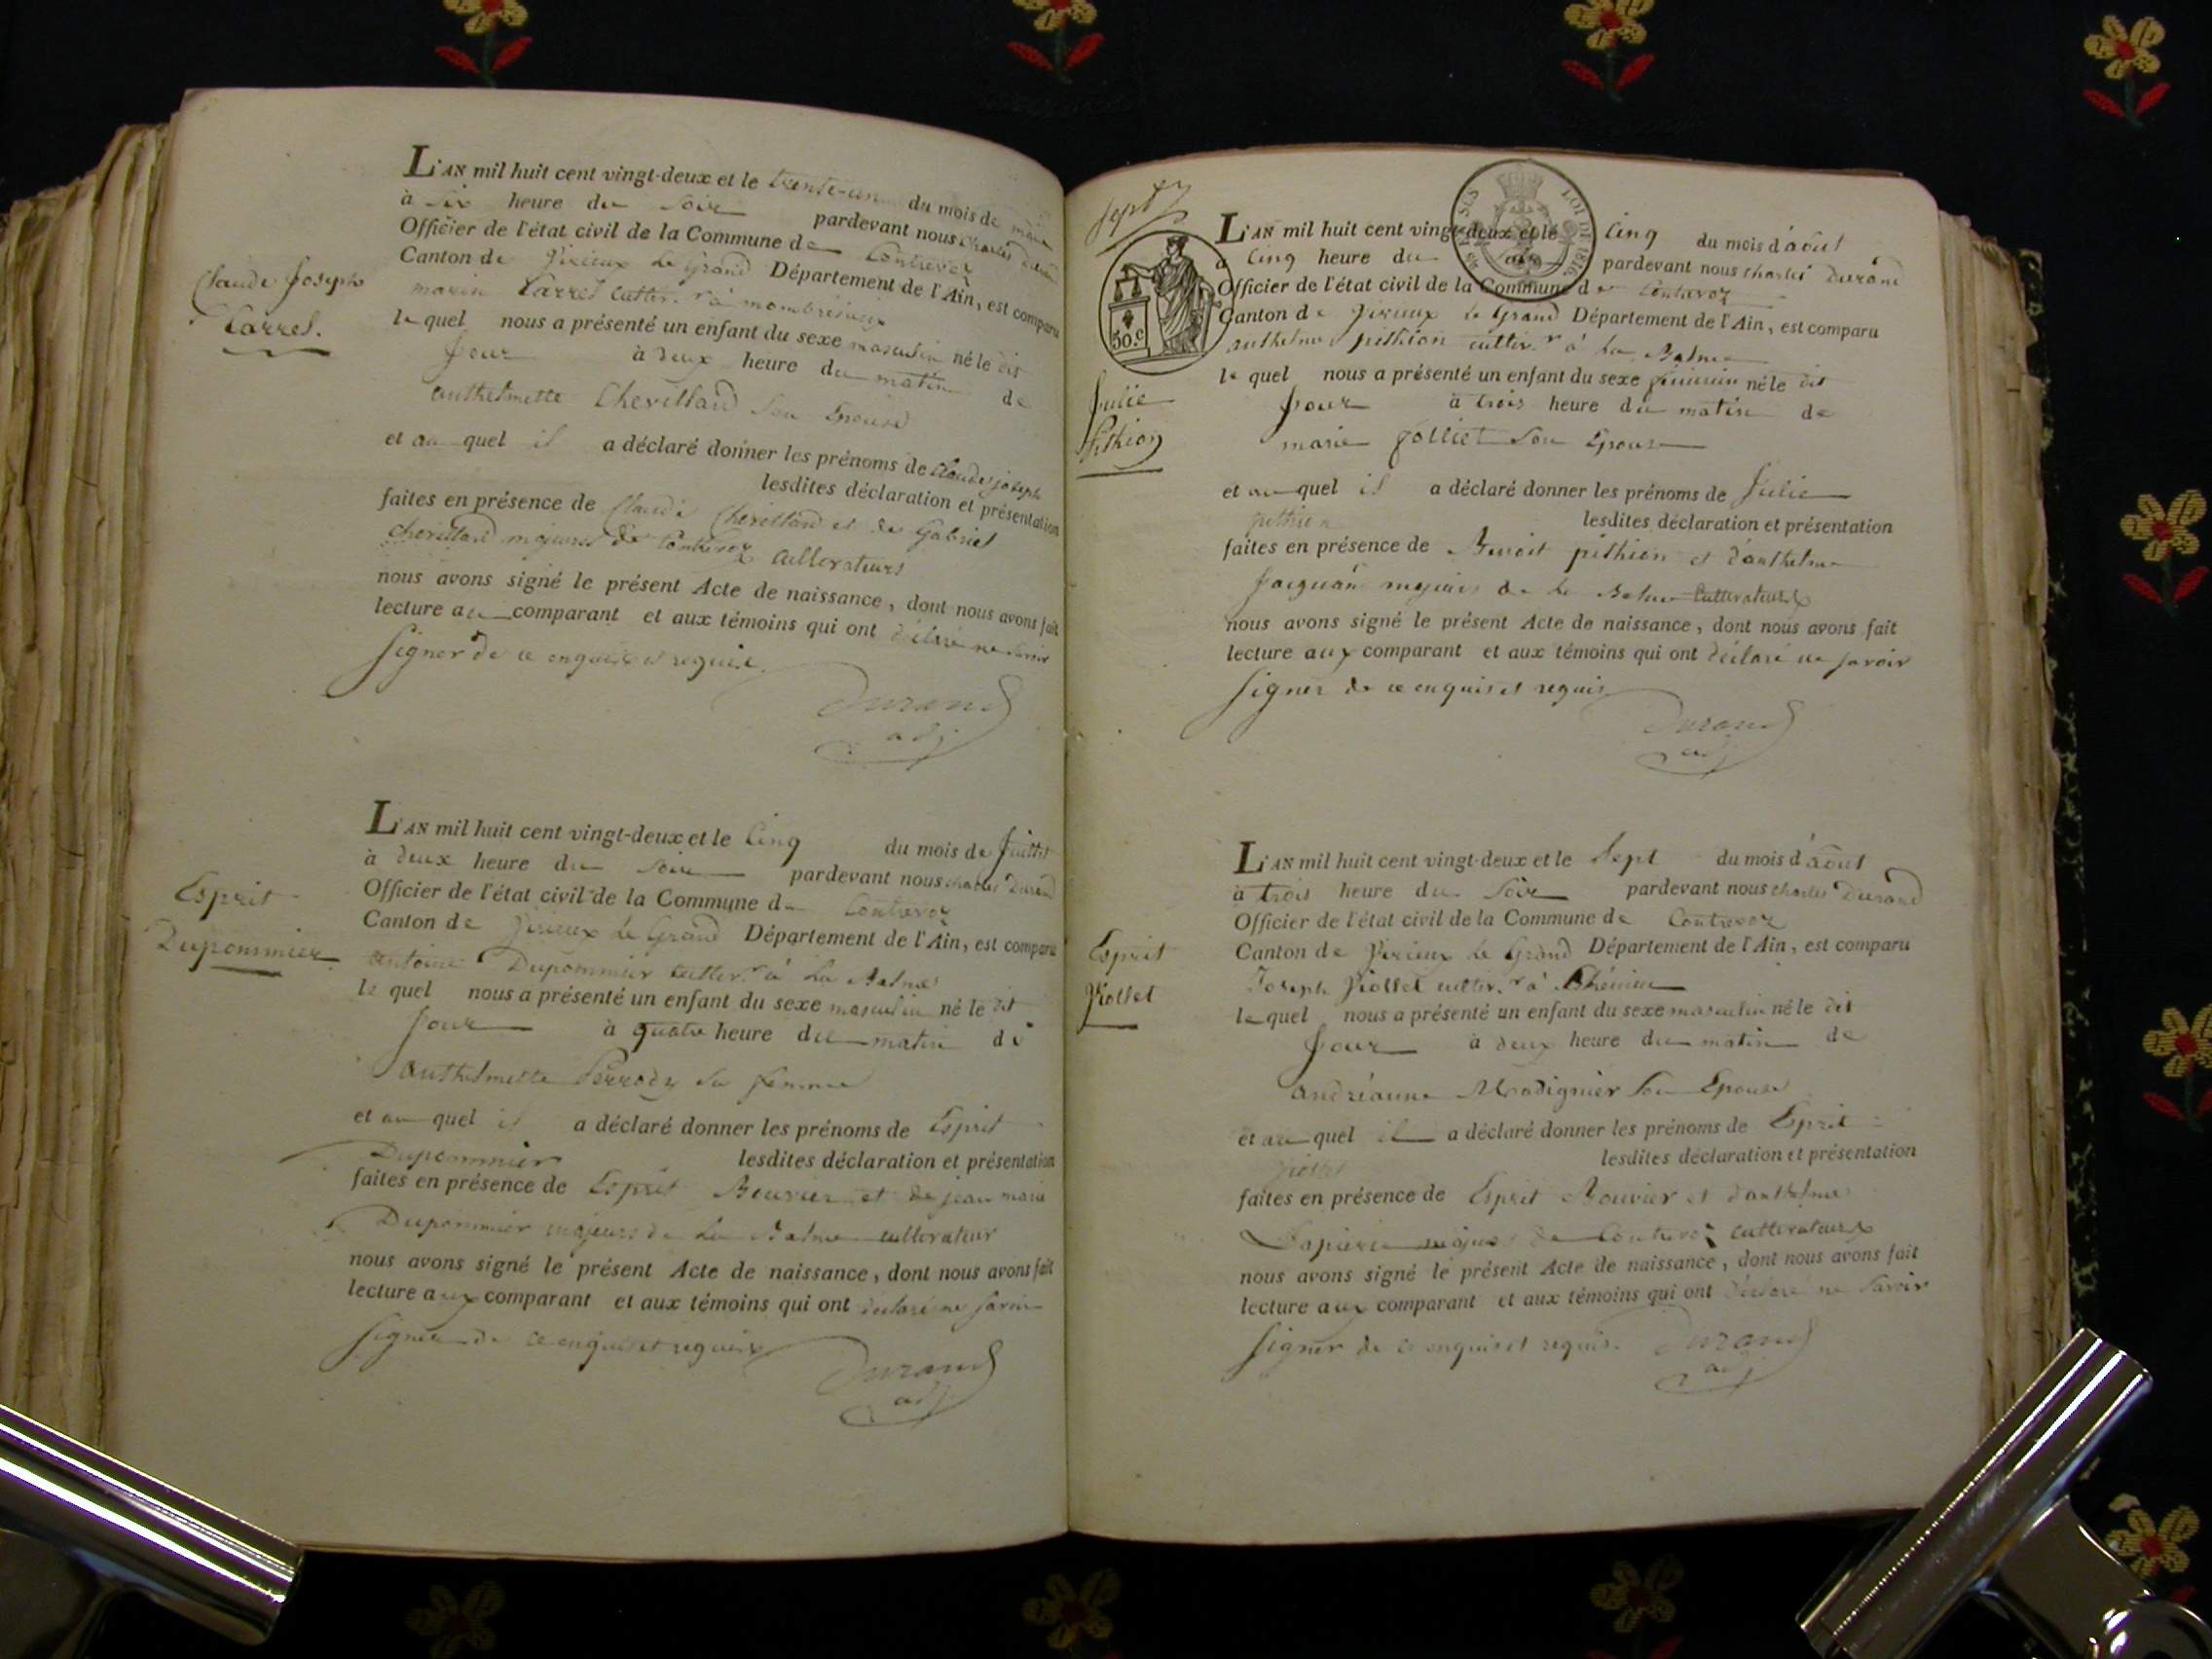 Claude Joseph
Carrel.
L'AN mil huit cent vingt-deux et le trente-un du mois de
à six heure du soir pardevant nous Charles Durand
Officier de l'état civil de la Commune de Contrevoz
Canton de Virieux le Grand Département de l'Ain, est comparu
Carrel cultiv.r à
lequel nous a présenté un enfant du sexe masculin né le dit
jour à deux heure du matin de
anthelmette Chevillard son Epouse
et au quel il a déclaré donner les prénoms de Claude joseph
lesdites déclaration et présentation
faites en présence de Claude Chevillard et de Gabriel
chevillard majeurs de Contrevoz cultivateurs
nous avons signé le présent Acte de naissance, dont nous avons fait
lecture au comparant et aux témoins qui ont déclaré ne savoir
signer de ce enquis et requis.
Durand
adj.
Esprit
Dupommier
L'AN mil huit cent vingt-deux et le Cinq du mois de Juillet
à deux heure du soir pardevant nous charles Durand
Officier de l'état civil de la Commune de Contrevoz
Canton de Virieux le Grand Département de l'Ain, est comparu
antoine Dupommier cultiv.r à La Balme
le quel nous a présenté un enfant du sexe masculin né le dit
jour à quatre heure du matin de
anthelmette Perrody sa femme
et au quel il a déclaré donner les prénoms de Esprit
Dupommier lesdites déclaration et présentation
faites en présence de Esprit Bouvier et de jean marie
Dupommier majeurs de La Balme cultivateur
nous avons signé le présent Acte de naissance, dont nous avons fait
lecture aux comparant et aux témoins qui ont déclaré ne savoir
signer de ce enquis et requis
Durand
adj.
sept
50.c
LOI DE 1816.
Julie
Pithion
L'AN mil huit cent vingt-deux et le Cinq du mois d'aout
à Cinq heure du soir pardevant nous charles Durand
Officier de l'état civil de la Commune de Contrevoz
Canton de Virieux le Grand Département de l'Ain, est comparu
anthelme pithion cultiv.r à La Balme
le quel nous a présenté un enfant du sexe féminin né le dit
jour à trois heure du matin de
marie jolliet son Epouse
et au quel il a déclaré donner les prénoms de Julie
pithion lesdites déclaration et présentation
faites en présence de Benoit pithion et d'anthelme
majeurs de La Balme Cultivateurs
nous avons signé le présent Acte de naissance, dont nous avons fait
lecture aux comparant et aux témoins qui ont déclaré ne savoir
signer de ce enquis et requis
Durand
adj.
Esprit
Piollet
L'AN mil huit cent vingt-deux et le Sept du mois d'aout
à trois heure du soir pardevant nous charles Durand
Officier de l'état civil de la Commune de Contrevoz
Canton de Virieux le Grand Département de l'Ain, est comparu
Joseph Piollet cultiv.r à
lequel nous a présenté un enfant du sexe masculin né le dit
jour à deux heure du matin de
andréanne Madignier son Epouse
et au quel il a déclaré donner les prénoms de Esprit
piollet lesdites déclaration et présentation
faites en présence de Esprit Bouvier et d'anthelme
majeurs de Contrevoz cultivateurs
nous avons signé le présent Acte de naissance, dont nous avons fait
lecture aux comparant et aux témoins qui ont déclaré ne savoir
signer de ce enquis et requis.
Durand
adj.